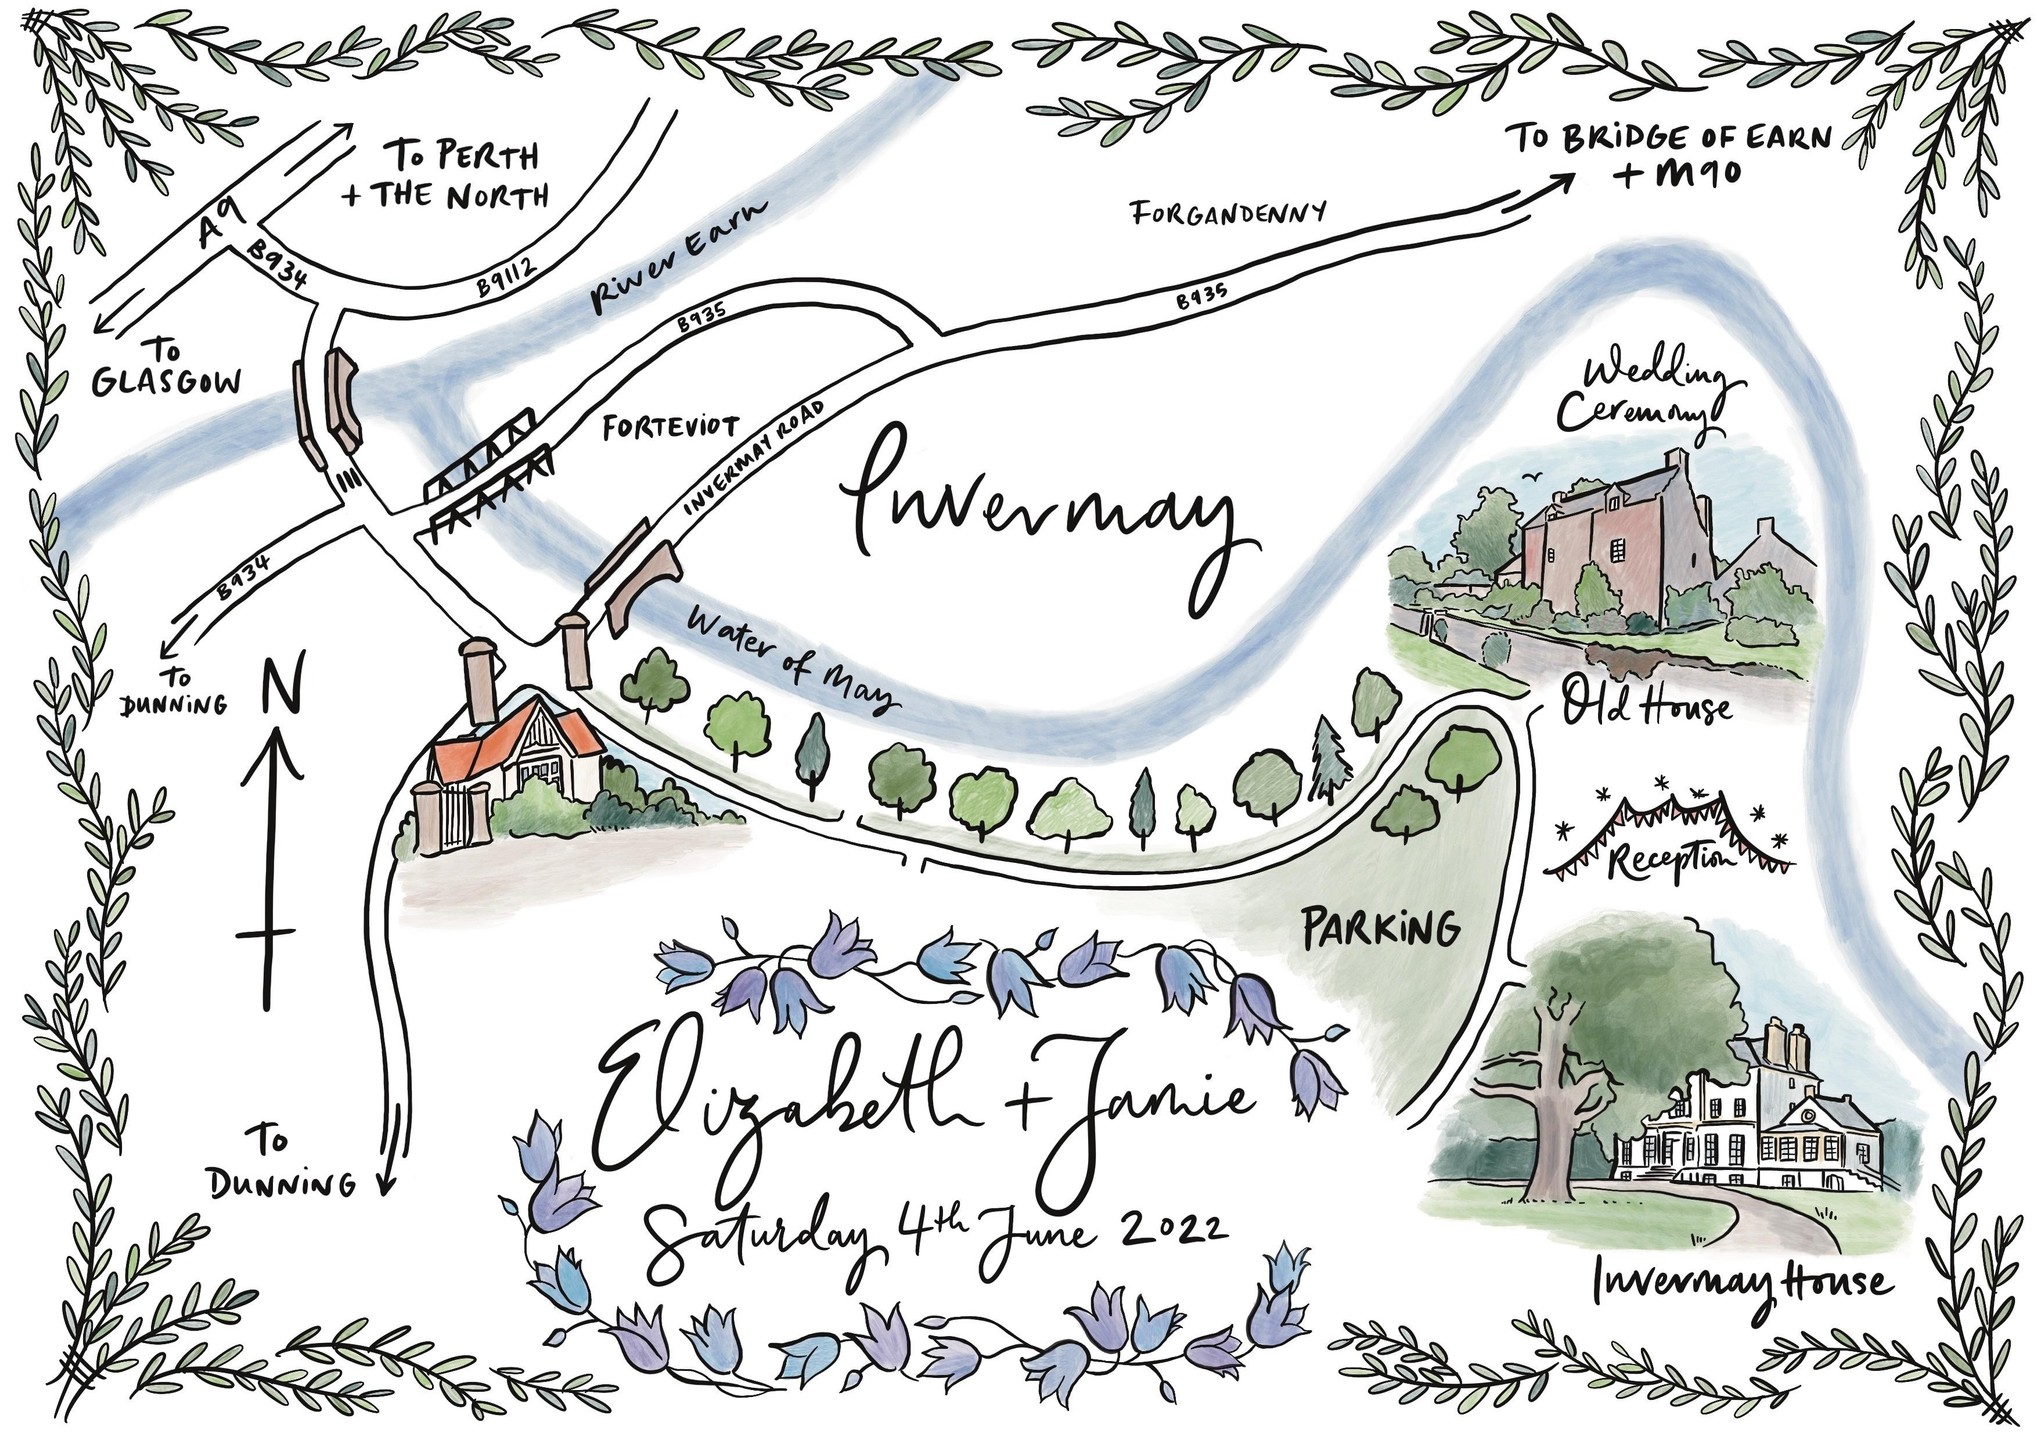 To PERTH
+ THE NORTH
A9
B934
B9112
To
GLASGOW
River Earn
B935
FORGANDENNY
B935
To BRIDGE OF EARN
+ M90
FORTEVIOT
INVERMAY ROAD
Invermay
Wedding
Ceremony
Old House
B934
To
DUNNING
N
Water of May
Reception
PARKING
Elizabeth + Jamie
Saturday 4th June 2022
To
DUNNING
Invermay House